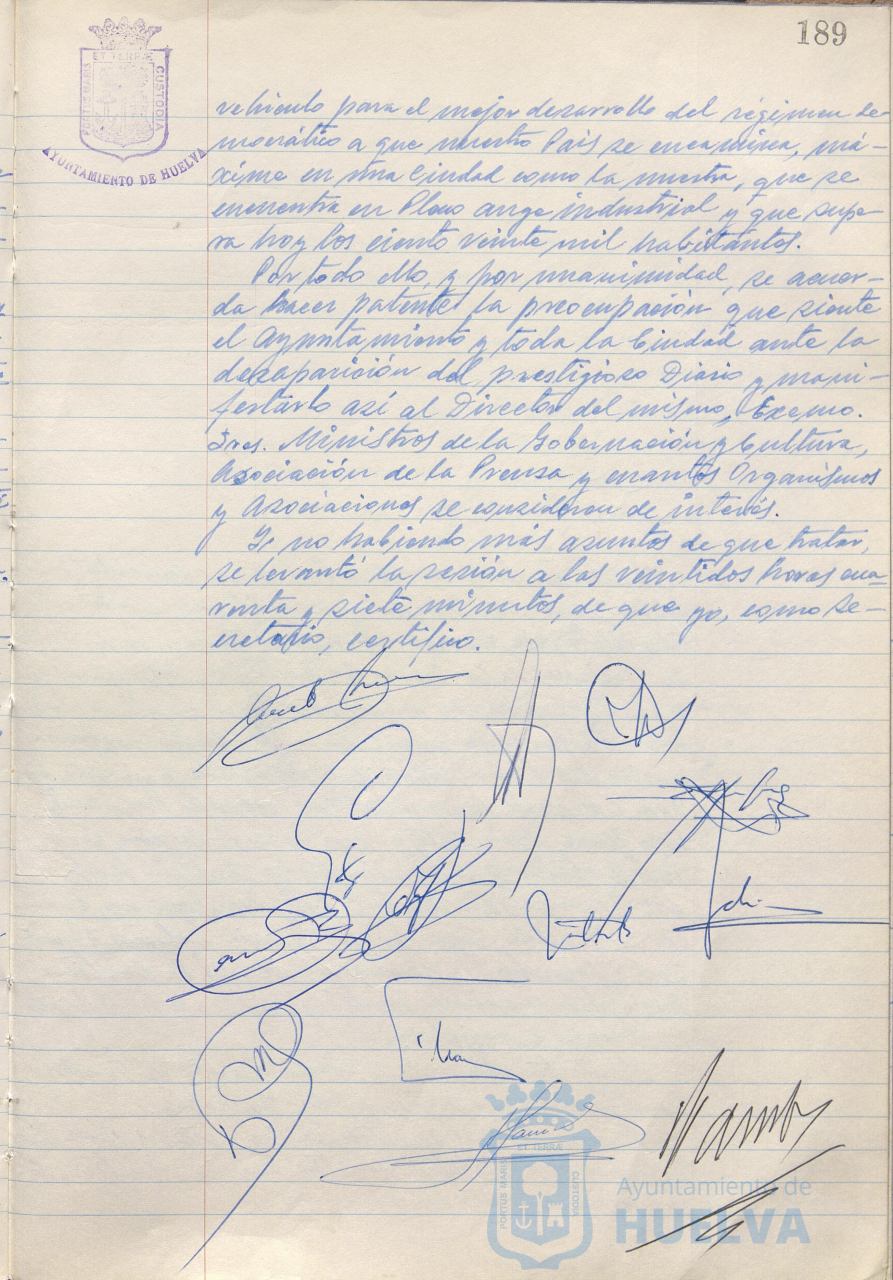 189
ET TERRÆ
PORTUS MARIS
CUSTODIA
AYUNTAMIENTO DE HUELVA
vehículo para el mejor desarrollo del régimen de
mocrático a que nuestro País se encamina, má-
xime en una Ciudad como la nuestra, que se
encuentra en Pleno auge industrial y que supe-
ra hoy los ciento veinte mil habitantes.
Por todo ello, y por unanimidad, se acuer-
da hacer patente la preocupación que siente
el Ayuntamiento y toda la Ciudad ante la
desaparición del prestigioso Diario y mani-
festarlo así al Director del mismo, Excmo.
Sres. Ministros de la Gobernación y Cultura,
Asociación de la Prensa y cuantos Organismos
y Asociaciones se consideren de interés.
Y no habiendo más asuntos de que tratar,
se levantó la sesión a las veintidos horas cua-
renta y siete minutos, de que yo, como Se-
cretario, certifico.
ET TERRÆ
PORTUS MARIS
CUSTODIA
Ayuntamiento de
HUELVA